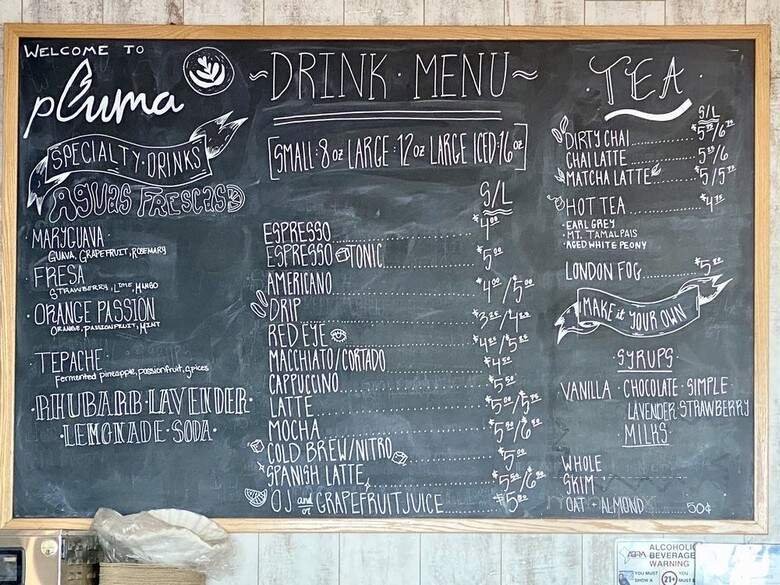 WELCOME TO
pluma
SPECIALTY·DRINKS
AGUAS FRESCAS
·MARYGUAVA·
GUAVA, GRAPEFRUIT, ROSEMARY
·FRESA·
STRAWBERRY, LIME, MANGO
·ORANGE PASSION
ORANGE, PASSIONFRUIT, MINT
·TEPACHE·
Fermented pineapple, passionfruit, spices
·RHUBARB·LAVENDER·
·LEMONADE·SODA·
~DRINK·MENU~
[SMALL:8oz LARGE:12oz LARGE ICED:16oz]
S/L
ESPRESSO $4.00
ESPRESSO TONIC $5.00
AMERICANO
DRIP
RED EYE
MACCHIATO/CORTADO $4.50
CAPPUCCINO
LATTE
MOCHA
COLD BREW/NITRO $5.00
SPANISH LATTE
OJ and/or GRAPEFRUIT JUICE
·TEA·
S/L
DIRTY CHAI
CHAI LATTE
MATCHA LATTE
HOT TEA
·EARL GREY
·MT. TAMALPAIS
·AGED WHITE PEONY
LONDON FOG
MAKE it YOUR OWN
·SYRUPS·
VANILLA·CHOCOLATE·SIMPLE
LAVENDER·STRAWBERRY
MILKS
WHOLE
SKIM
OAT·ALMOND 50¢
ABRA
ALCOHOLIC
BEVERAGE
WARNING
YOU MUST
SHOW
21+
YOU